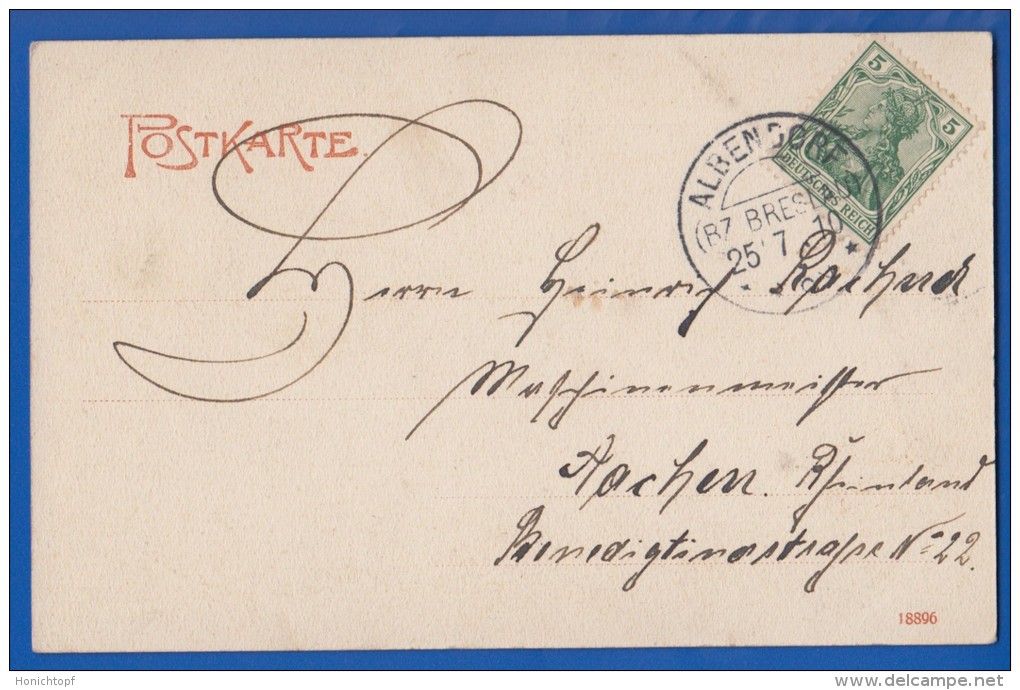 POSTKARTE.
5
5
DEUTSCHES REICH
ALBENDORF
(BZ. BRESL
25 7 10
Herrn Heinrich
Maschinenmeister
Aachen. Rheinland
Benedigtinerstraße No 22.
18896
Honichtopf
delcampe.net